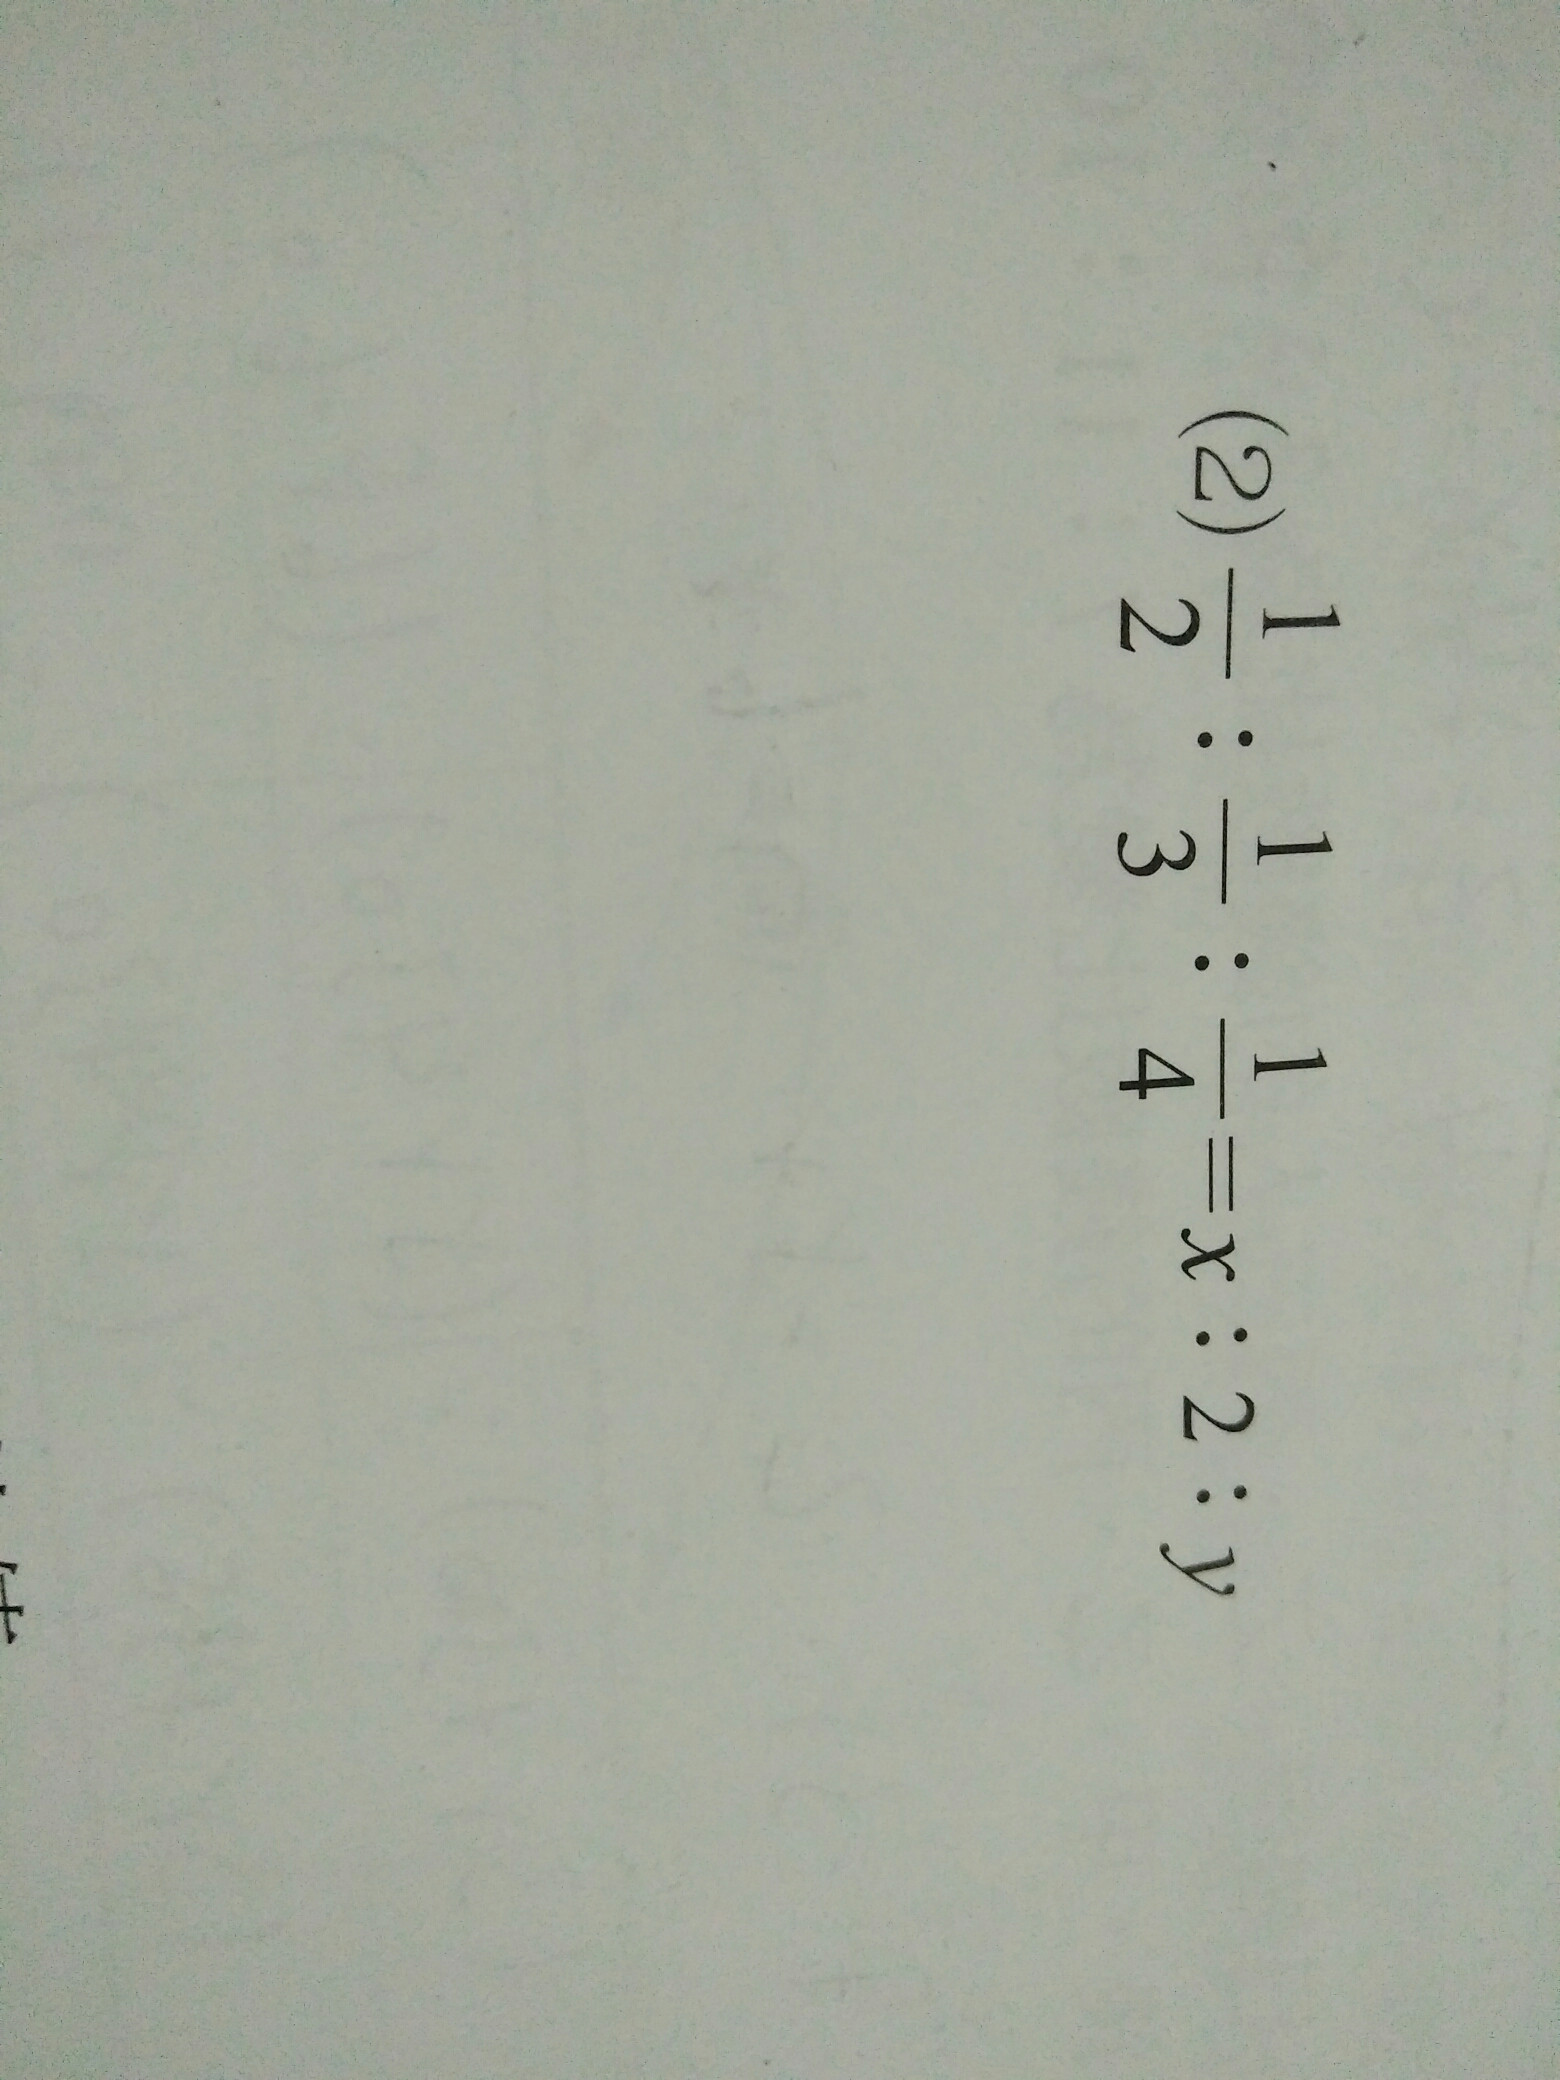 (2) 1/2 : 1/3 : 1/4 = x : 2 : y